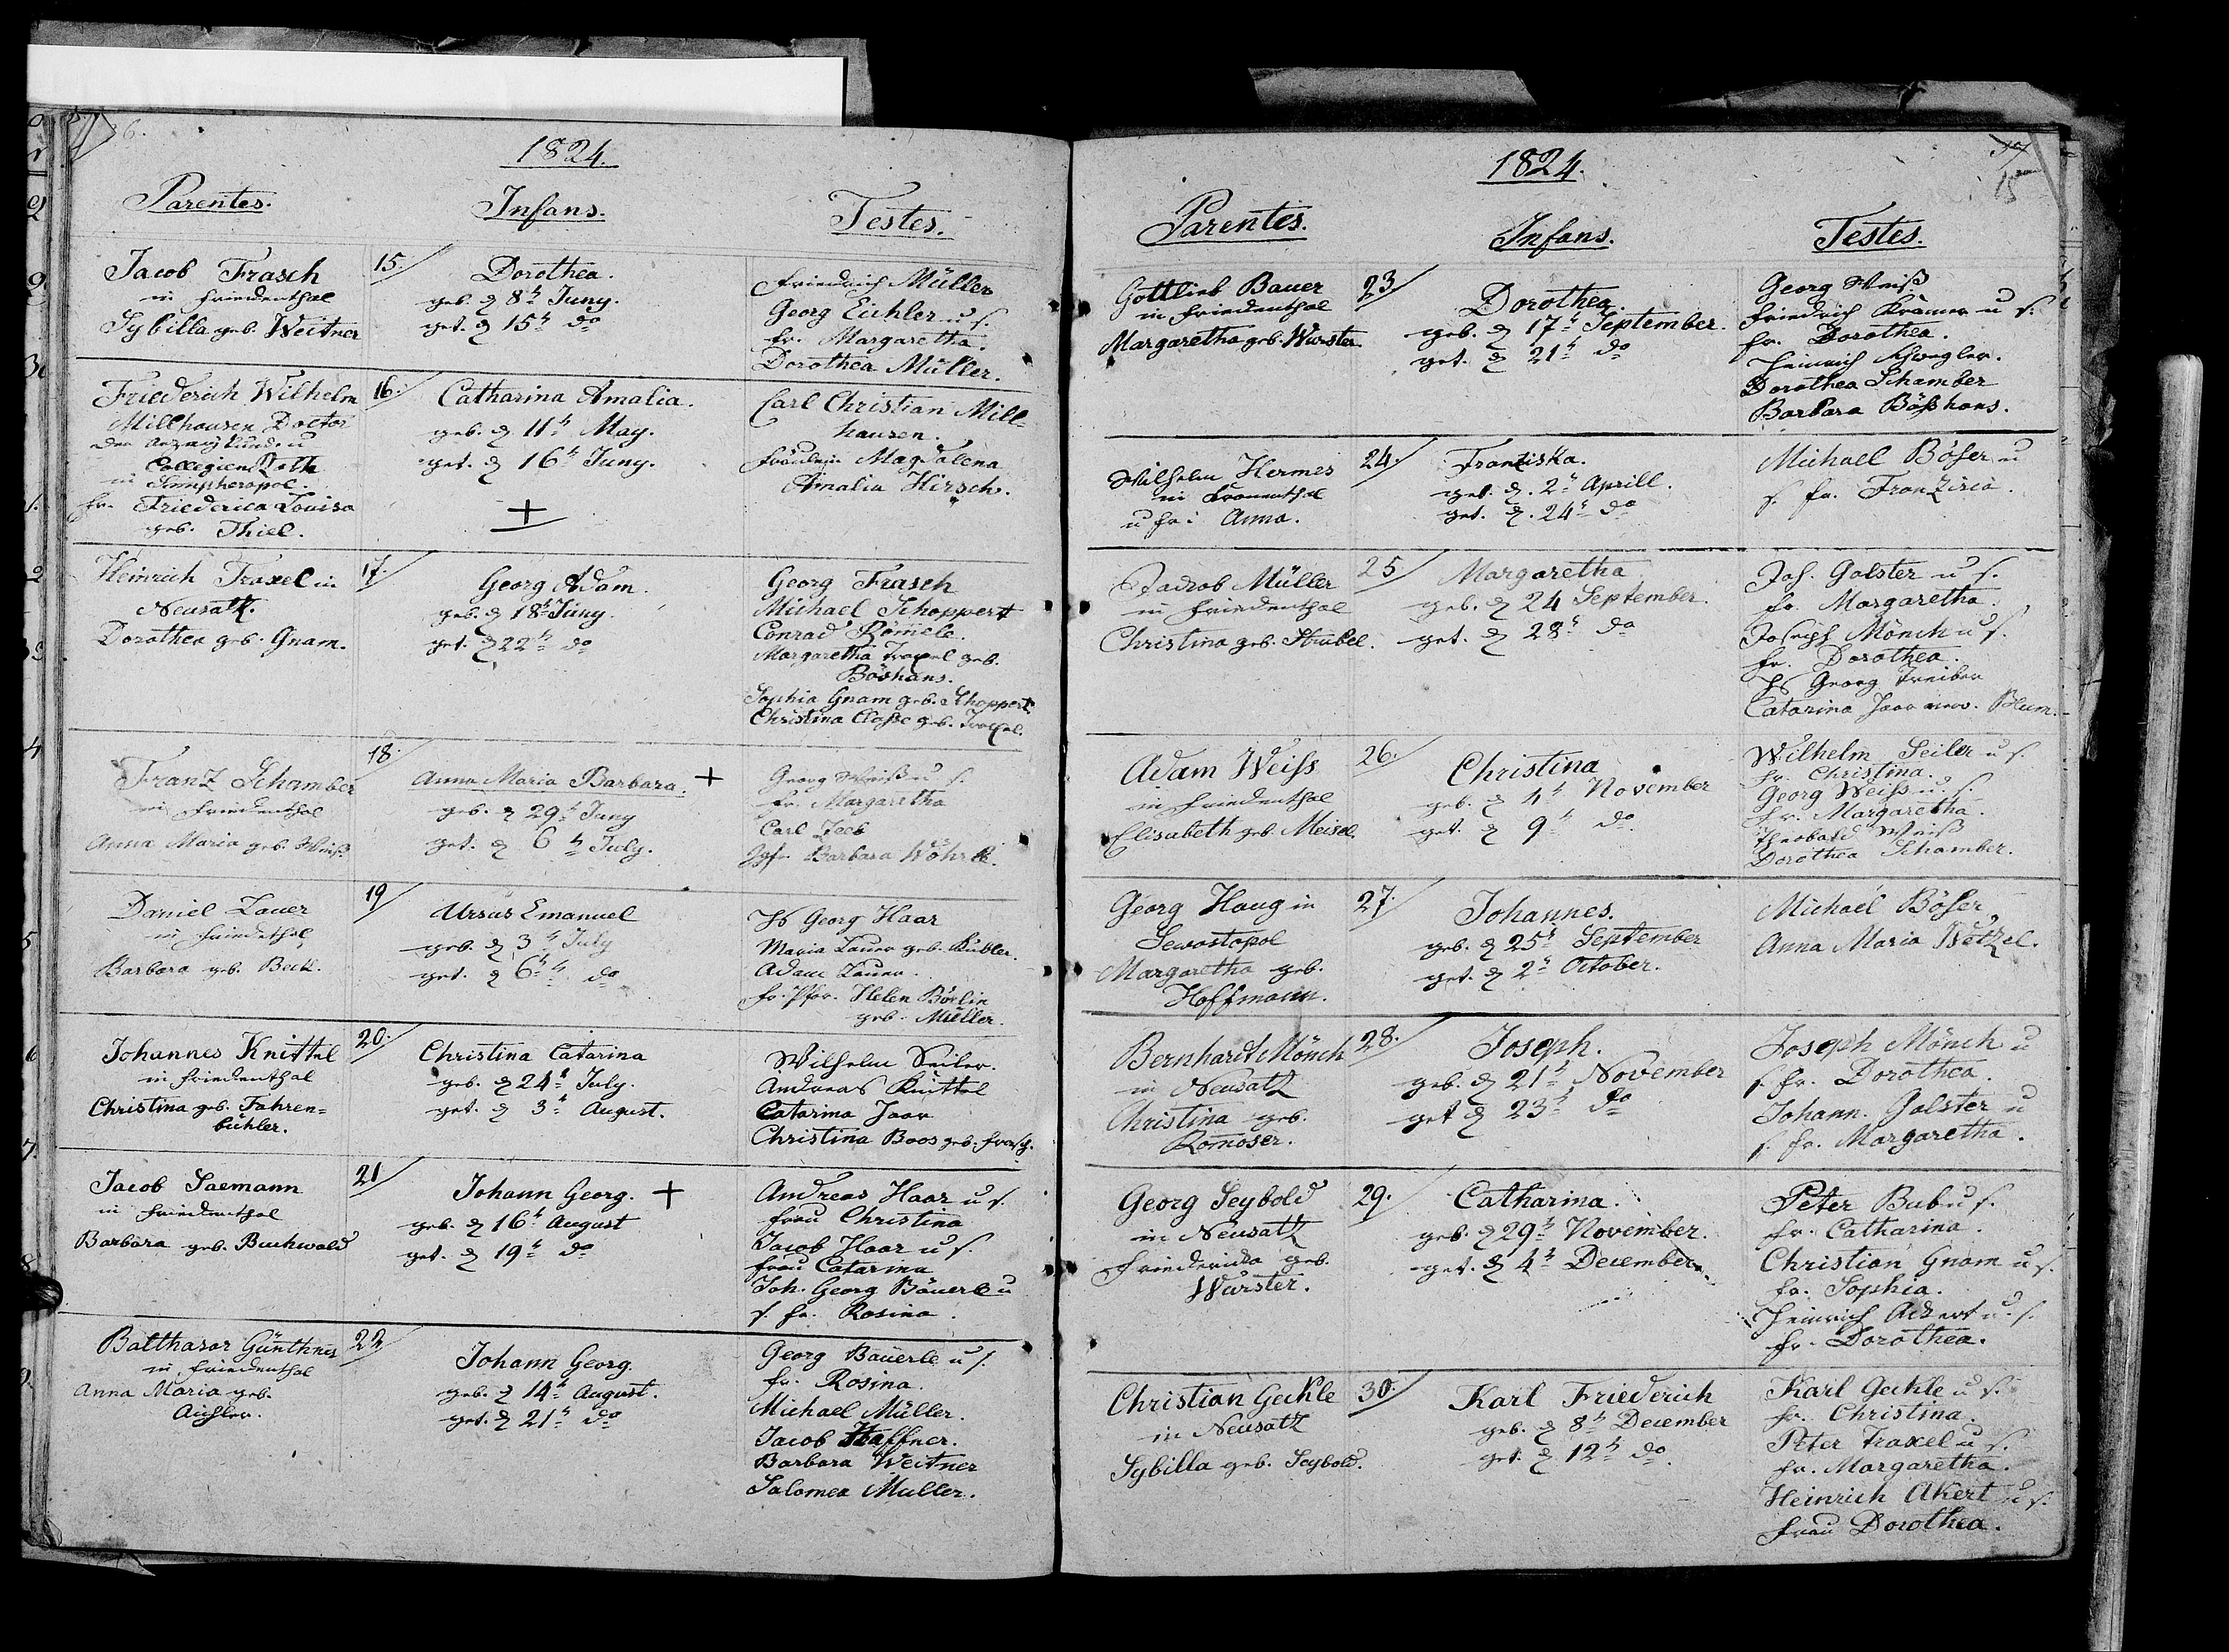 6.
1824.
Parentes.
Infans.
Testes.
Jacob Frasch
in Friedenthal
Sybilla geb. Weitner
15.
Dorothea.
geb. d 8t Juny.
get. d 15t do
Friedrich Müller
Georg Eichler u s.
fr. Margaretha.
Dorothea Müller.
Friederich Wilhelm
Millhausen Doctor
der Arzneykunde u
Collegien Rath
in Simpheropol.
fr. Friederica Louisa
geb. Thiel.
16.
Catharina Amalia.
geb. d. 11t May.
get. d 16t Juny.
+
Carl Christian Mill-
hausen.
Fräulein Magdalena
Amalia Hirsch.
Heinrich Traxel in
Neusatz.
Dorothea geb. Gnam.
17.
Georg Adam.
geb. d 18t Juny.
get. d 22t do
Georg Frasch
Michael Schoppert
Conrad Römele.
Margaretha Traxel geb.
Böshans.
Sophia Gnam geb. Schoppert
Christina Closse geb. Traxel.
Franz Schamber
in Friedenthal
Anna Maria geb. Weiß.
18.
Anna Maria Barbara. +
geb. d 29t Juny
get. d 6t July.
Georg Weiß u s.
fr. Margaretha
Carl Zeeb
Jgfr. Barbara Wöhrle.
Daniel Lauer
in Friedethal
Barbara geb. Beck.
19
Ursus Emanuel
geb. d 3t July
get. d 6t do
Hs Georg Haar
Maria Lauer geb. Kubler.
Adam Lauer.
fr. Pfar. Helen Börlin
geb. Müller.
Johannes Knittel
in Friedenthal
Christina geb. Fahren=
bühler.
20.
Christina Catarina
geb. d 24t July.
get. d 3t August.
Wilhelm Seiler.
Andreas Knittel
Catarina Haar
Christina Boos geb. Frasch.
Jacob Saemann
in Friedenthal
Barbara geb. Buchwald
21
Johann Georg. +
geb. d 16t August
get. d 19t do
Andreas Haar u s.
frau Christina
Jacob Haar u s.
frau Catarina
Joh. Georg Bäuerle u
s. fr. Rosina.
Balthasar Günthner
in Friedenthal
Anna Maria geb.
Aichler.
22
Johann Georg.
geb. d 14t August.
get. d 21t do
Georg Bäuerle u s.
fr. Rosina.
Michael Müller.
Jacob Haffner.
Barbara Weitner
Salomea Muller.
15
1824.
Parentes.
Infans.
Testes.
Gottlieb Bauer
in Friedenthal
Margaretha geb. Wurster
23.
Dorothea.
geb. d 17t September.
get. d 21t do
Georg Weiß
Friedrich Krämer u s.
fr. Dorothea.
Heinrich Schwegler.
Dorothea Schamber
Barbara Bößhans.
Wilhelm Hermes
in Kronenthal
u fr. Anna.
24.
Franziska.
geb. d. 2t Aprill.
get. d. 24t do
Michael Böser u
s. fr. Franzisca.
Jackob Müller
in Friedenthal
Christina geb. Strubel.
25
Margaretha
geb. d 24 September.
get. d 28t do
Joh. Galster u s.
fr. Margaretha.
Joseph Mönch u s.
fr. Dorothea.
Hs Georg Treiber
Catarina Haar verw. Blum.
Adam Weiss
in Friedenthal
Elisabeth geb. Meisel.
26.
Christina
geb. d 4t November
get. d 9t do
Wilhelm Seiler u s.
fr. Christina.
Georg Weiss u s.
fr. Margaretha.
Theobald Weiß
Dorothea Schamber.
Georg Haug in
Sewastopol
Margaretha geb.
Hoffmann.
27.
Johannes.
geb. d 25t September
get. d 2t October.
Michael Böser
Anna Maria Wetzel.
Bernhardt Mönch
in Neusatz
Christina geb.
Romoser.
28.
Joseph.
geb. d 21t November
get d 23t do
Joseph Mönch u
s. fr. Dorothea.
Johann. Galster u
s. fr. Margaretha.
Georg Seybold
in Neusatz
Friedericka geb.
Wurster.
29.
Catharina.
geb. d 29t November.
get. d 4t December.
Peter Bub u s.
fr. Catharina.
Christian Gnam u s.
fr. Sophia.
Heinrich Ackert u s.
fr. Dorothea.
Christian Geckle
in Neusatz
Sybilla geb. Seybold.
30.
Karl Friederich
geb. d 8t December
get. d 12t do.
Karl Geckle u s.
fr. Christina.
Peter Traxel u s.
fr. Margaretha.
Heinrich Akert u s.
frau Dorothea.